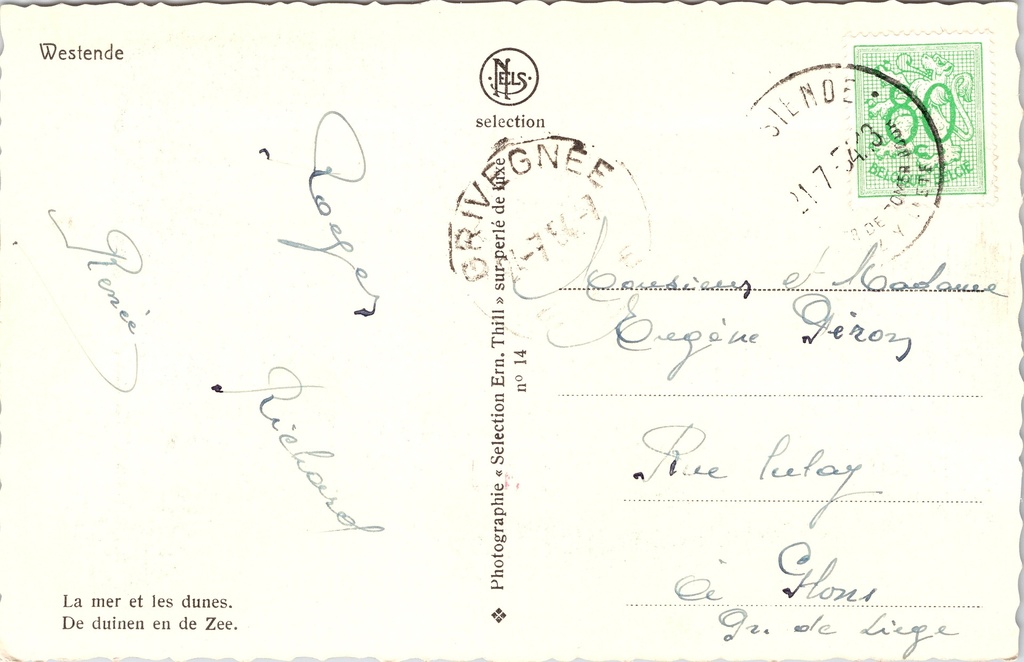 Westende
NELS
selection
Roger
Renée
Richard
La mer et les dunes.
De duinen en de Zee.
Photographie « Selection Ern. Thill » sur perlé de luxe
nº 14
GRIVEGNÉE
-7 54
STENDE
21-7-54
80
BELGIQUE BELGIË
Monsieur et Madame
Eugène Piron
Rue
à Glons
Pr. de Liege